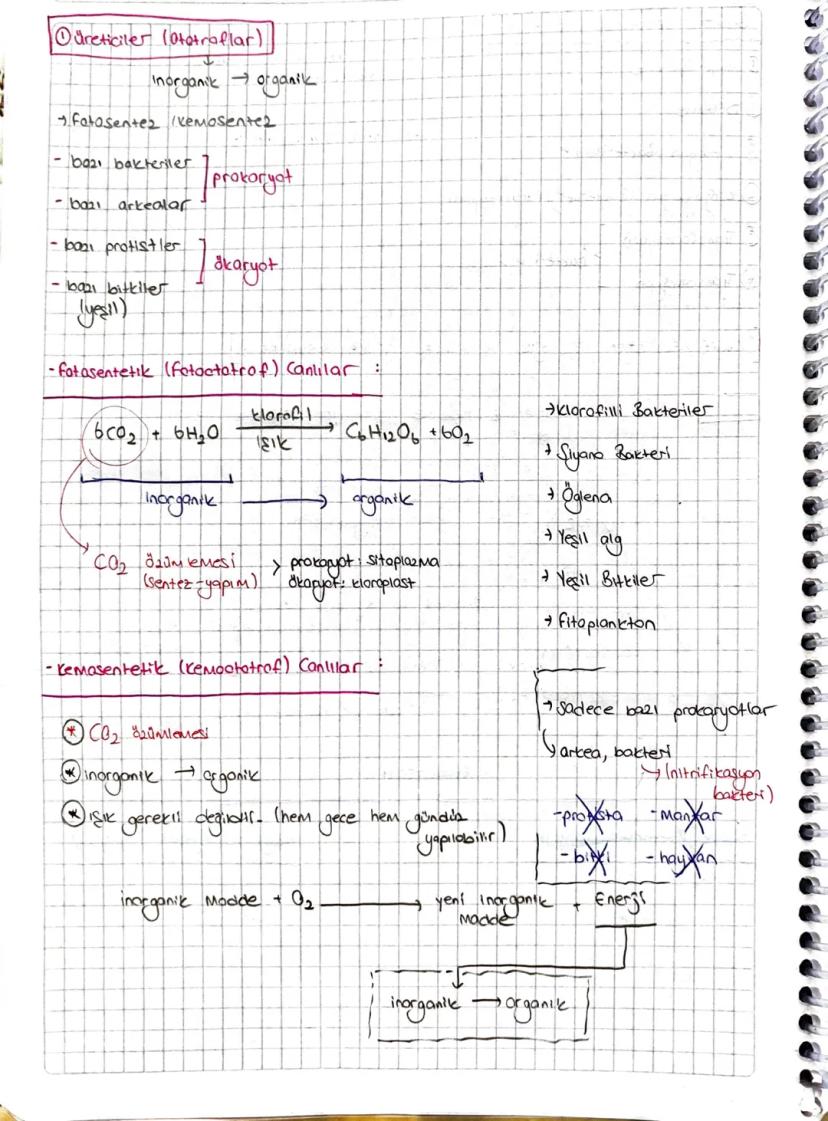 ① üreticiler (ototroflar)
↓
inorganik → organik
→ fotosentez / kemosentez
- bazı bakteriler
- bazı arkealar
prokaryot
- bazı protistler
- bazı bitkiler
(yeşil)
ökaryot
- fotosentetik (fotoototrof) Canlılar :
6CO₂ + 6H₂O klorofil ışık → C₆H₁₂O₆ + 6O₂
inorganik → organik
CO₂ özümlemesi
(sentez-yapım)
> prokaryot : sitoplazma
ökaryot : kloroplast
→ klorofilli Bakteriler
→ Siyano Bakteri
→ Öglena
→ Yeşil alg
→ Yeşil Bitkiler
→ fitoplankton
- kemosentetik (kemoototrof) Canlılar :
* CO₂ özümlemesi
* inorganik → organik
* ışık gerekli değildir. (hem gece hem gündüz
yapılabilir)
→ sadece bazı prokaryotlar
↳ arkea, bakteri
→ (nitrifikasyon
bakteri)
- protista - mantar
- bitki - hayvan
inorganik madde + O₂ → yeni inorganik madde + Enerji
inorganik → organik